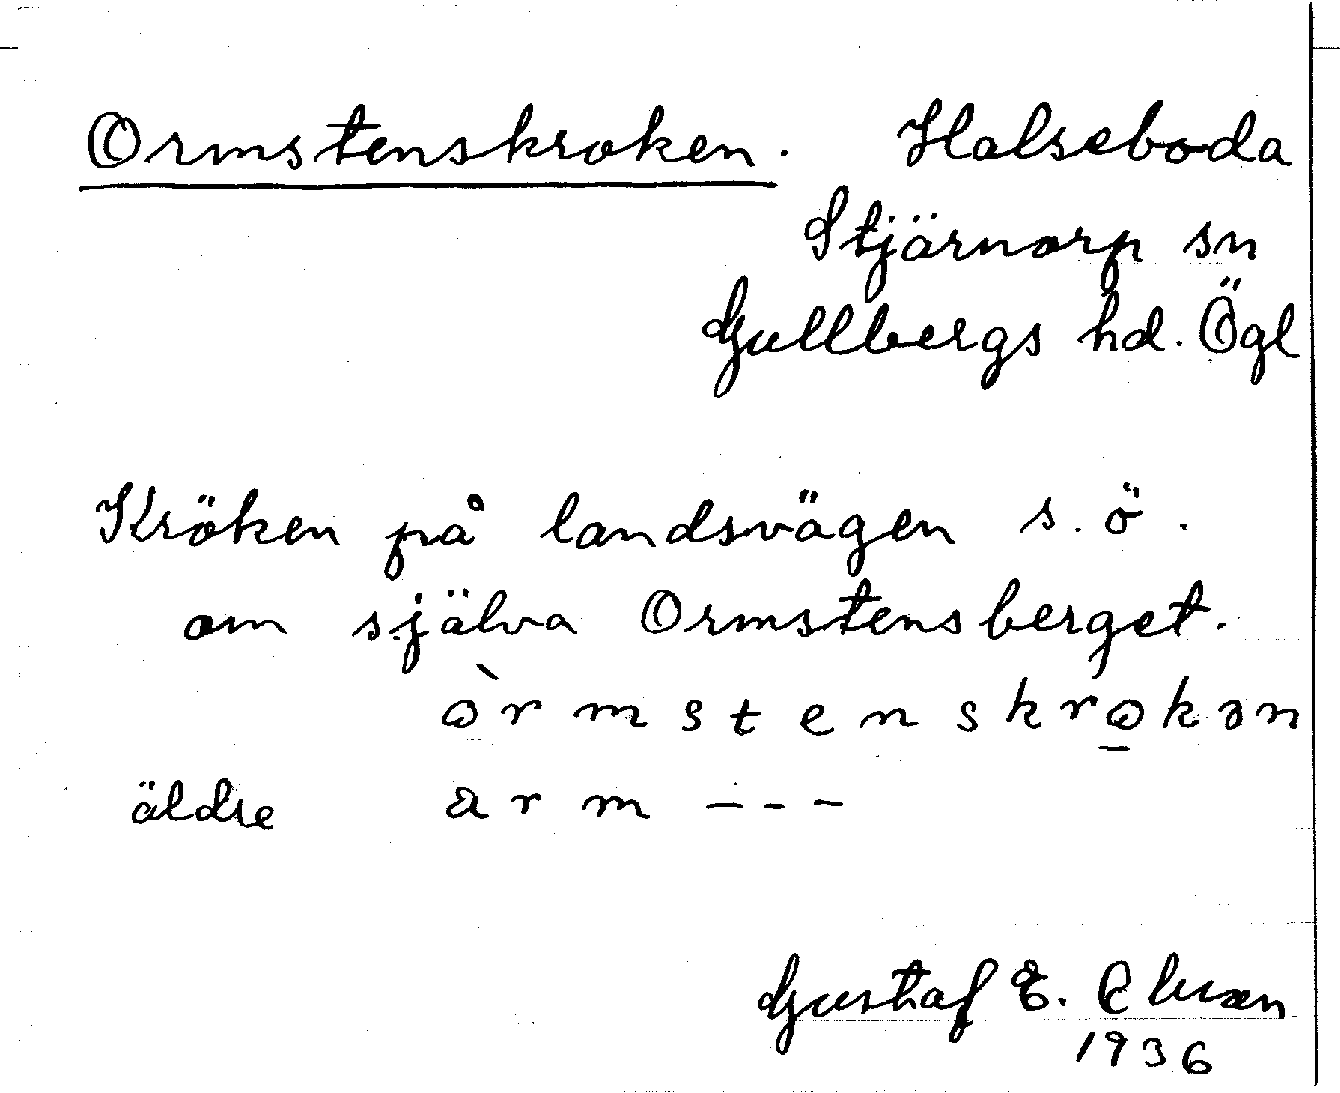 Ormstenskroken. Halseboda
Stjärnorp sn
Gullbergs hd. Ögl
Kröken på landsvägen s. ö.
om själva Ormstensberget.
òrmstenskro̲kən
äldre arm ---
Gustaf E.
1936